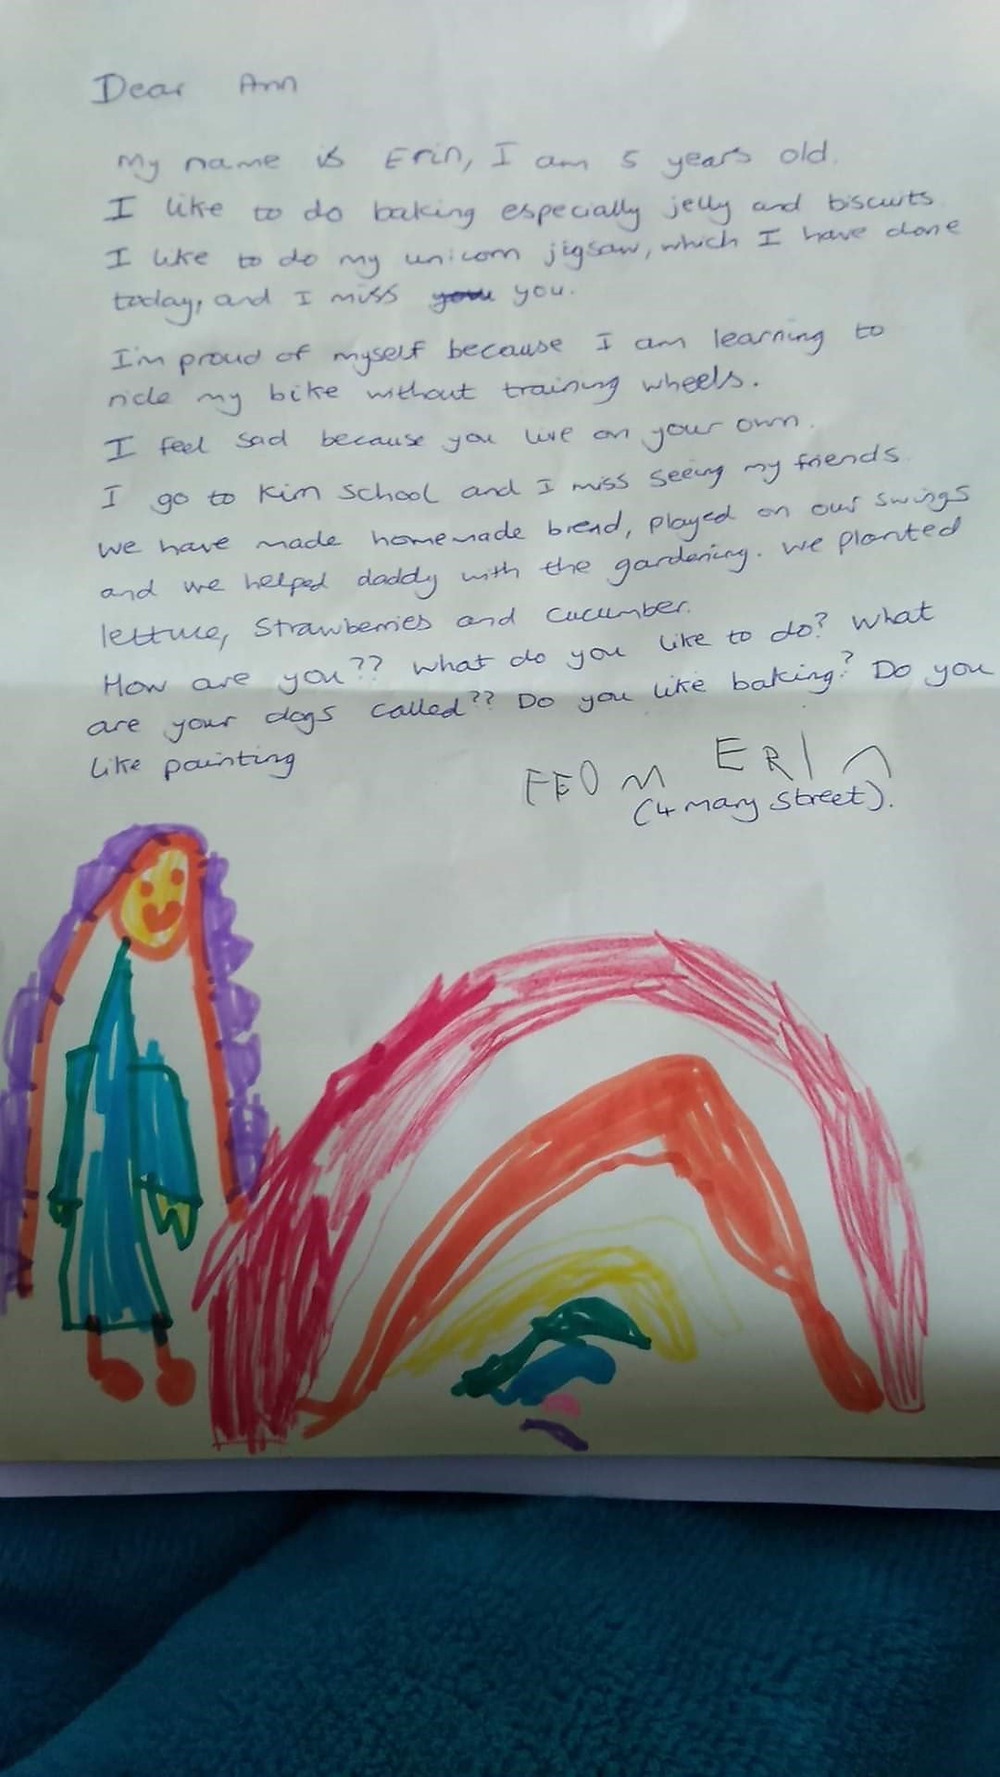 Dear Ann
My name is Erin, I am 5 years old.
I like to do baking especially jelly and biscuits
I like to do my unicorn jigsaw, which I have done
today, and I miss you you.
I'm proud of myself because I am learning to
ride my bike without training wheels.
I feel sad because you live on your own.
I go to Kim School and I miss seeing my friends.
We have made homemade bread, played on our swings
and we helped daddy with the gardening. We planted
lettuce, Strawberries and Cucumber.
How are you?? What do you like to do? What
are your dogs called?? Do you like baking? Do you
like painting
FEOM ERIN
(4 Mary Street).